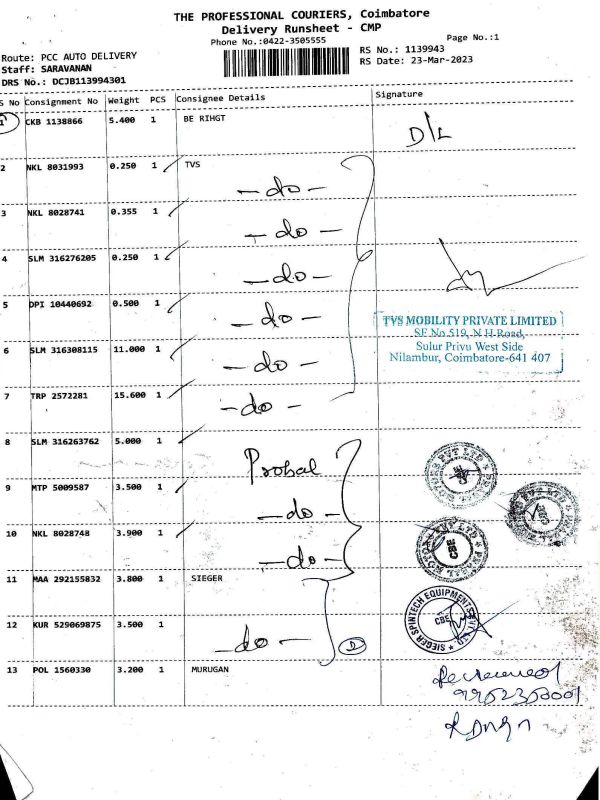 THE PROFESSIONAL COURIERS, Coimbatore
Delivery Runsheet - CMP
Phone No.:0422-3505555
Page No.:1
Route: PCC AUTO DELIVERY
RS No.: 1139943
Staff: SARAVANAN
RS Date: 23-Mar-2023
DRS No.: DCJB113994301
S No Consignment No Weight PCS Consignee Details Signature
1 CKB 1138866 5.400 1 BE RIHGT D/L
2 NKL 8031993 0.250 1 TVS
- do -
3 NKL 8028741 0.355 1
- do -
4 SLM 316276205 0.250 1
- do -
5 DPI 10440692 0.500 1
- do -
TVS MOBILITY PRIVATE LIMITED
SF No 519, N H Road,
Sulur Privu West Side
Nilambur, Coimbatore-641 407
6 SLM 316308115 11.000 1
- do -
7 TRP 2572281 15.600 1
- do -
8 SLM 316263762 5.000 1
Probal
9 MTP 5009587 3.500 1
- do -
10 NKL 8028748 3.900 1
- do -
CBE
11 MAA 292155832 3.800 1 SIEGER
SIEGER SPINTECH EQUIPMENTS PVT LTD
CBE
12 KUR 529069875 3.500 1
- do -
2
13 POL 1560330 3.200 1 MURUGAN